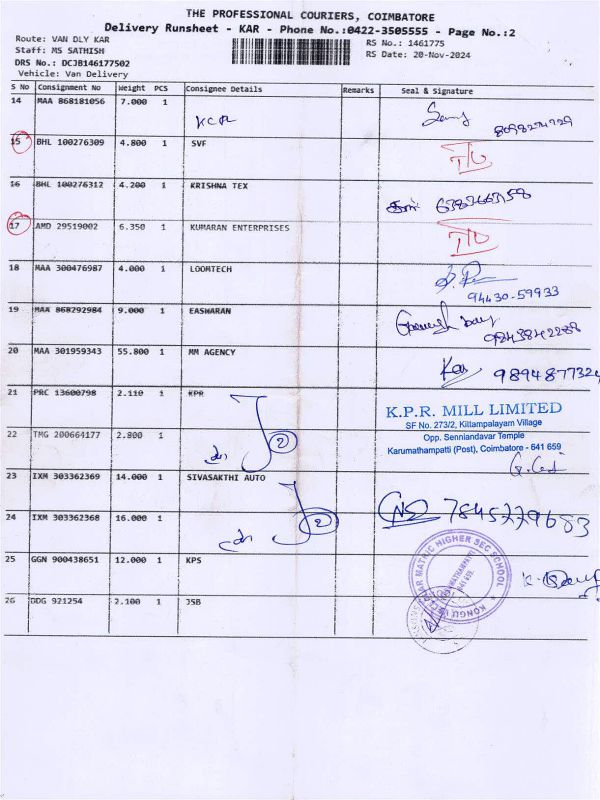 THE PROFESSIONAL COURIERS, COIMBATORE
Delivery Runsheet - KAR - Phone No.:0422-3505555 - Page No.:2
Route: VAN DLY KAR RS No.: 1461775
Staff: MS SATHISH RS Date: 20-Nov-2024
DRS No.: DCJB146177502
Vehicle: Van Delivery
S No Consignment No Weight PCS Consignee Details Remarks Seal & Signature
14 MAA 868181056 7.000 1
KCR
15 BHL 100276309 4.800 1 SVF
16 BHL 100276312 4.200 1 KRISHNA TEX
17 AMD 29519002 6.350 1 KUMARAN ENTERPRISES
18 MAA 300476987 4.000 1 LOOMTECH
94430-59933
19 MAA 868292984 9.000 1 EASWARAN
9843842288
20 MAA 301959343 55.800 1 MM AGENCY
9894877324
21 PRC 13600798 2.110 1 KPR
K.P.R. MILL LIMITED
SF No. 273/2, Kittampalayam Village
Opp. Senniandavar Temple
Karumathampatti (Post), Coimbatore - 641 659
22 TMG 200664177 2.800 1
2
23 IXM 303362369 14.000 1 SIVASAKTHI AUTO
7845779683
24 IXM 303362368 16.000 1
2
25 GGN 900438651 12.000 1 KPS
26 DDG 921254 2.100 1 JSB